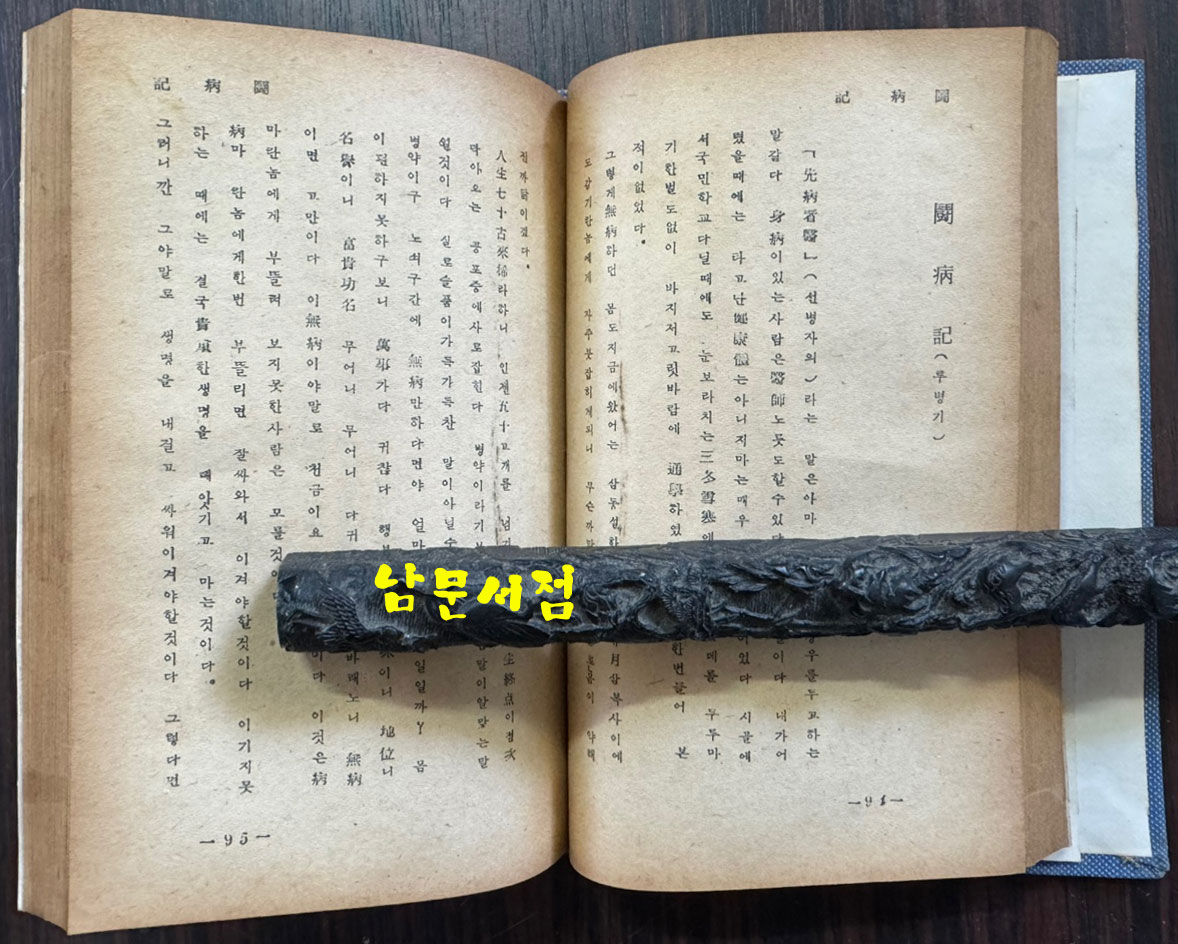 鬪病記
鬪病記(투병기)
「先病者醫」(선병자의)라는 말은아마 경우를두고하는
말같다 身病이있는사람은醫師노릇도할수있다 말이다 내가어
렸을때에는 타고난健康體는아니지마는매우 이었다 시골에
서국민학교다닐때에도 눈보라치는三冬雪寒에 두루마
기한벌도없이 바지저고릿바람에 通學하였 한번들어 본
적이없었다.
그렇게無病하던 몸도지금에왔어는 삼동설한 月삼복사이에
도 감기란놈에게 자주붓잡히게되니 무슨까닭 몸이 약해
—94—
鬪病記
진까닭이겠다.
人生七十古來稀라하니 인젠五十고개를 넘기 生終点이점次
닥아 오는 공포중에사로잡힌다 병약이라기보 말이알맞는말
일것이다 실로슬픔이가득가득찬 말이아닐수
병약이구 노쇠구간에 無病만하다면야 얼마 일일까? 몸
이편하지못하구보니 萬事가다 귀찮다 행복 이니 地位니
名譽이니 富貴功名 무어니 무어니 다귀 바래노니 無病
이면 고만이다 이無病이야말로 천금이요 이다 이것은病
마란놈에게 부뜰려 보지못한사람은 모를것이다.
病마 란놈에게한번 부뜰리면 잘싸와서 이겨야할것이다 이기지못
하는 때에는 결국貴重한생명을 빼앗기고 마는것이다.
그러니깐 그야말로 생명을 내걸고 싸워이겨야할것이다 그렇다면
—95—
남문서점